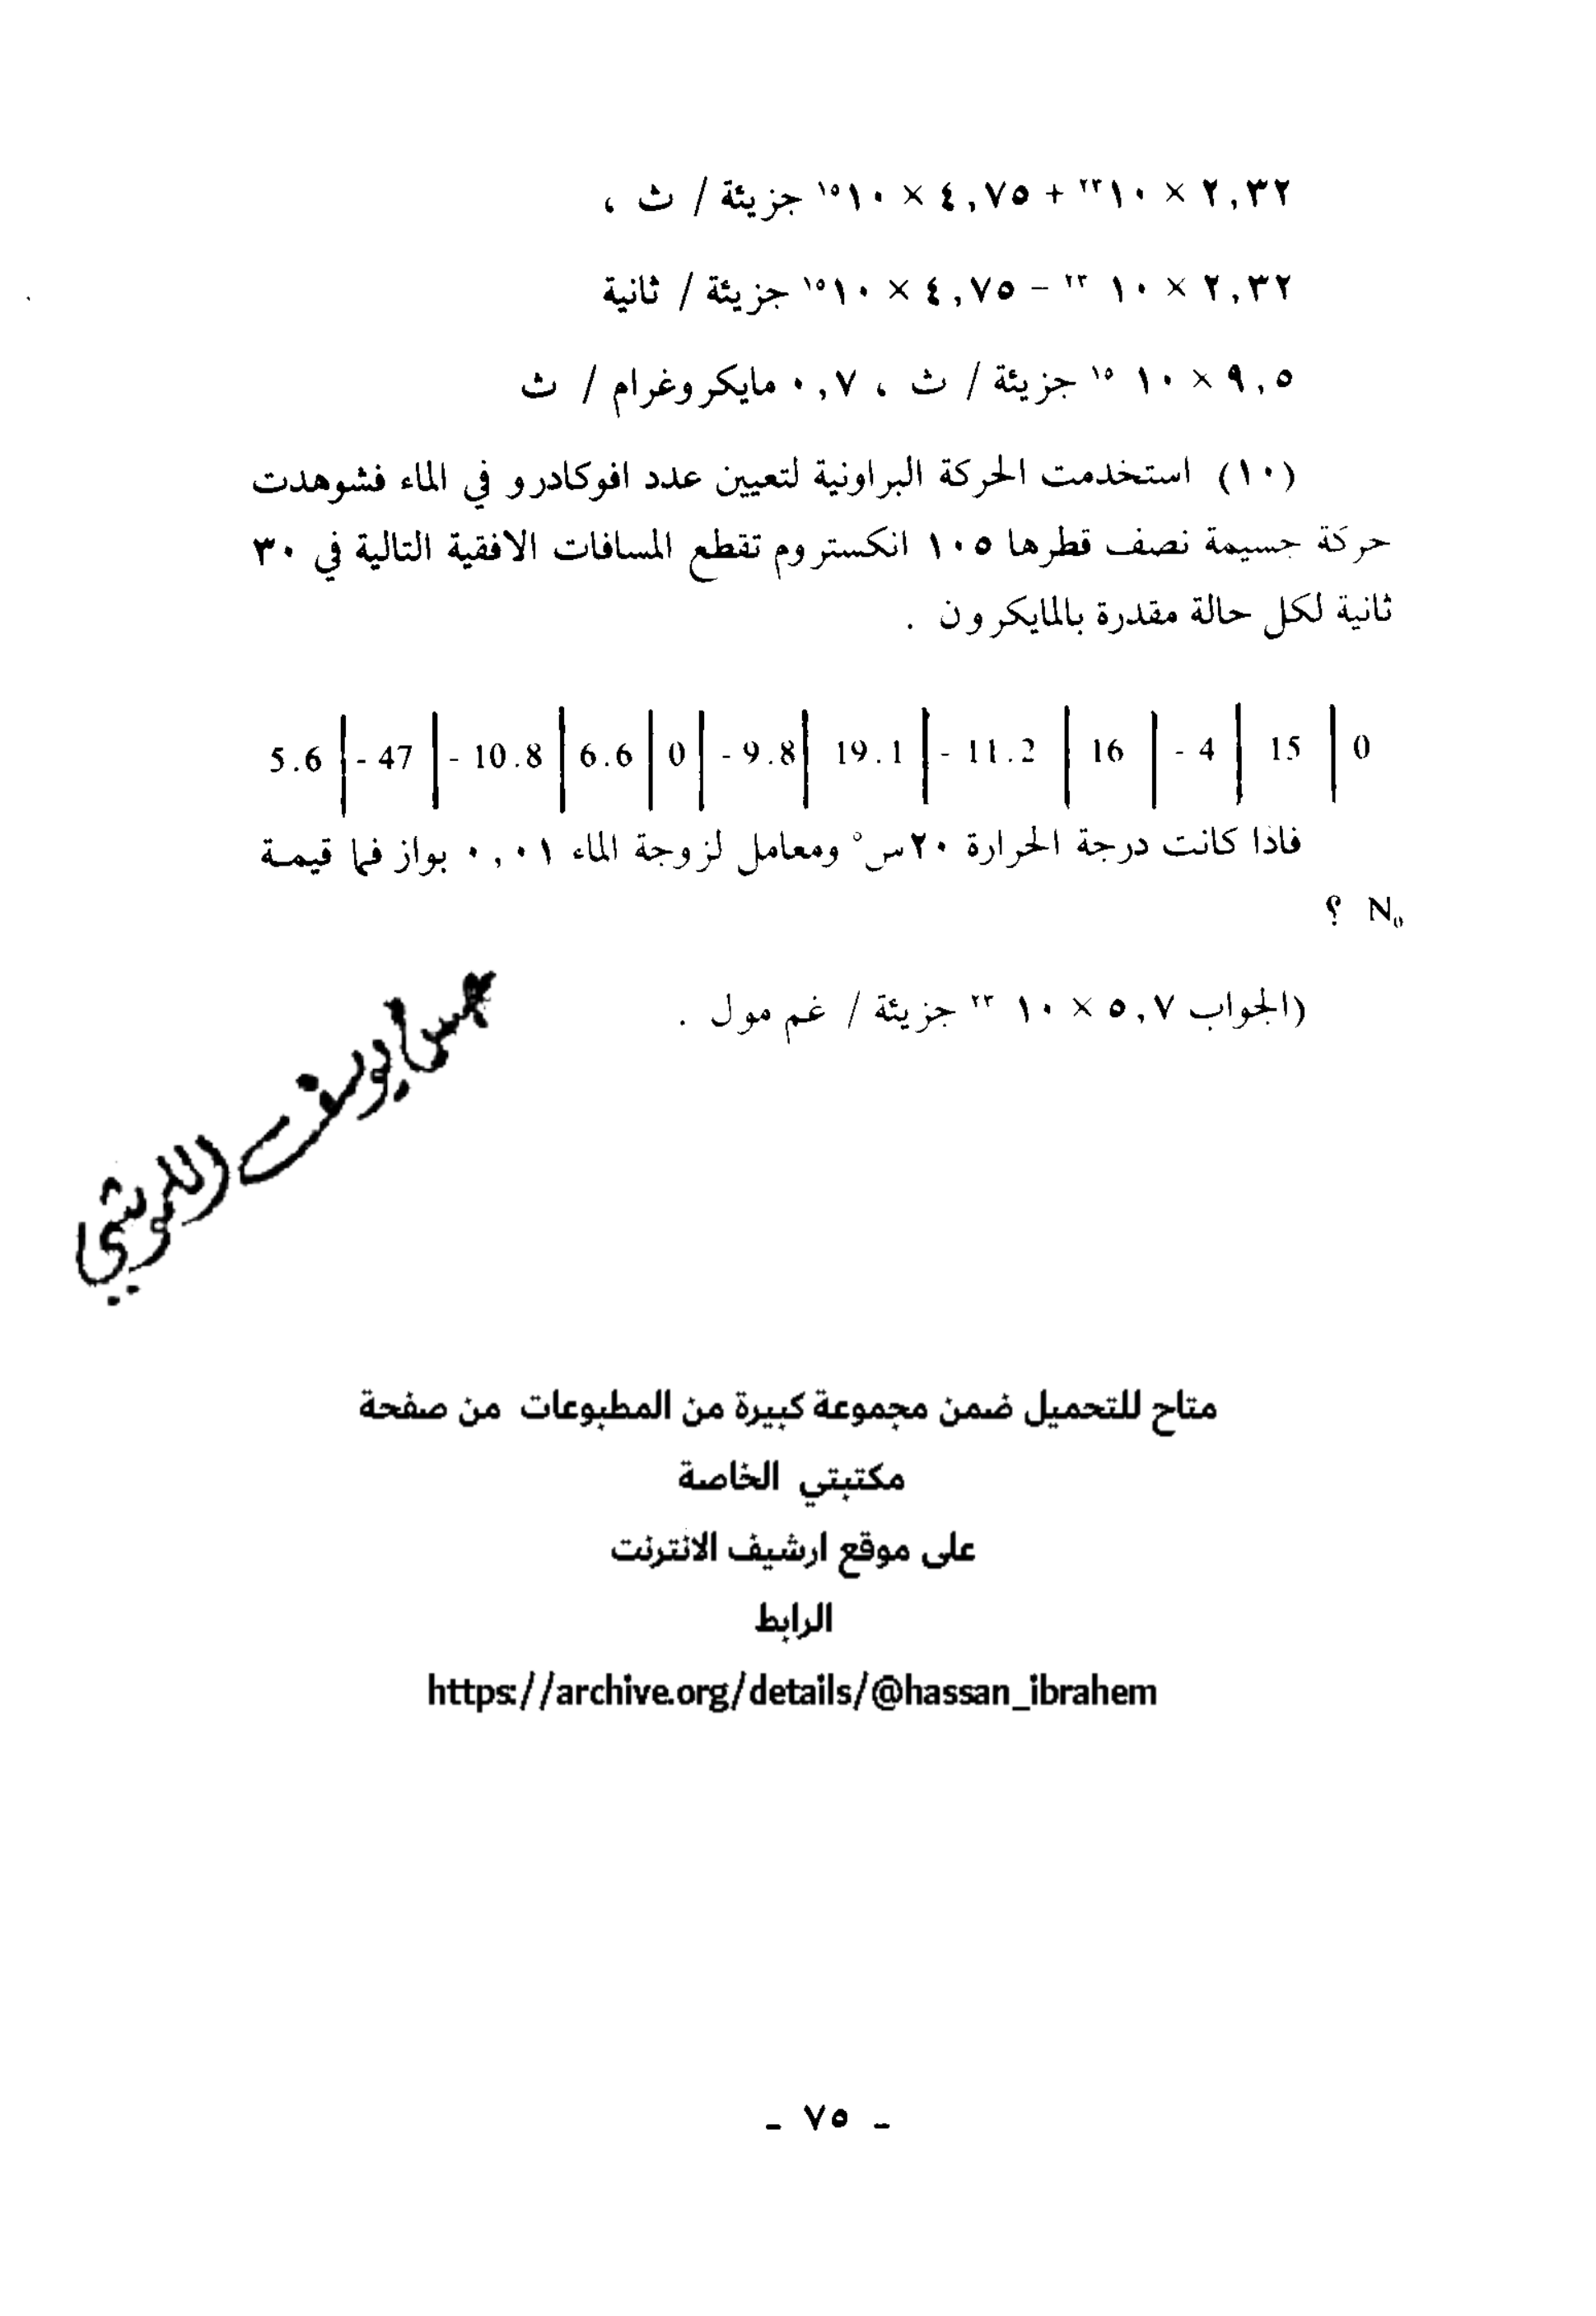 ٢,٣٢ × ١٠٢٣ + ٤,٧٥ × ١٠١٥ جزيئة / ث ،
٢,٣٢ × ١٠ ٢٣ – ٤,٧٥ × ١٠١٥ جزيئة / ثانية
٩,٥ × ١٠ ١٥ جزيئة / ث ، ٠,٧ مايكروغرام / ث
(١٠) استخدمت الحركة البراونية لتعيين عدد افوكادرو في الماء فشوهدت
حركة جسيمة نصف قطرها ١٠٥ انكستروم تقطع المسافات الافقية التالية في ٣٠
ثانية لكل حالة مقدرة بالمايكرون .
5.6 | - 47 | - 10.8 | 6.6 | 0 | - 9.8 | 19.1 | - 11.2 | 16 | - 4 | 15 | 0
فاذا كانت درجة الحرارة ٢٠س° ومعامل لزوجة الماء ٠,٠١ بواز فما قيمة
N₀ ؟
(الجواب ٥,٧ × ١٠ ٢٣ جزيئة / غم مول .
متاح للتحميل ضمن مجموعة كبيرة من المطبوعات من صفحة
مكتبتي الخاصة
على موقع ارشيف الانترنت
الرابط
https://archive.org/details/@hassan_ibrahem
- ٧٥ -